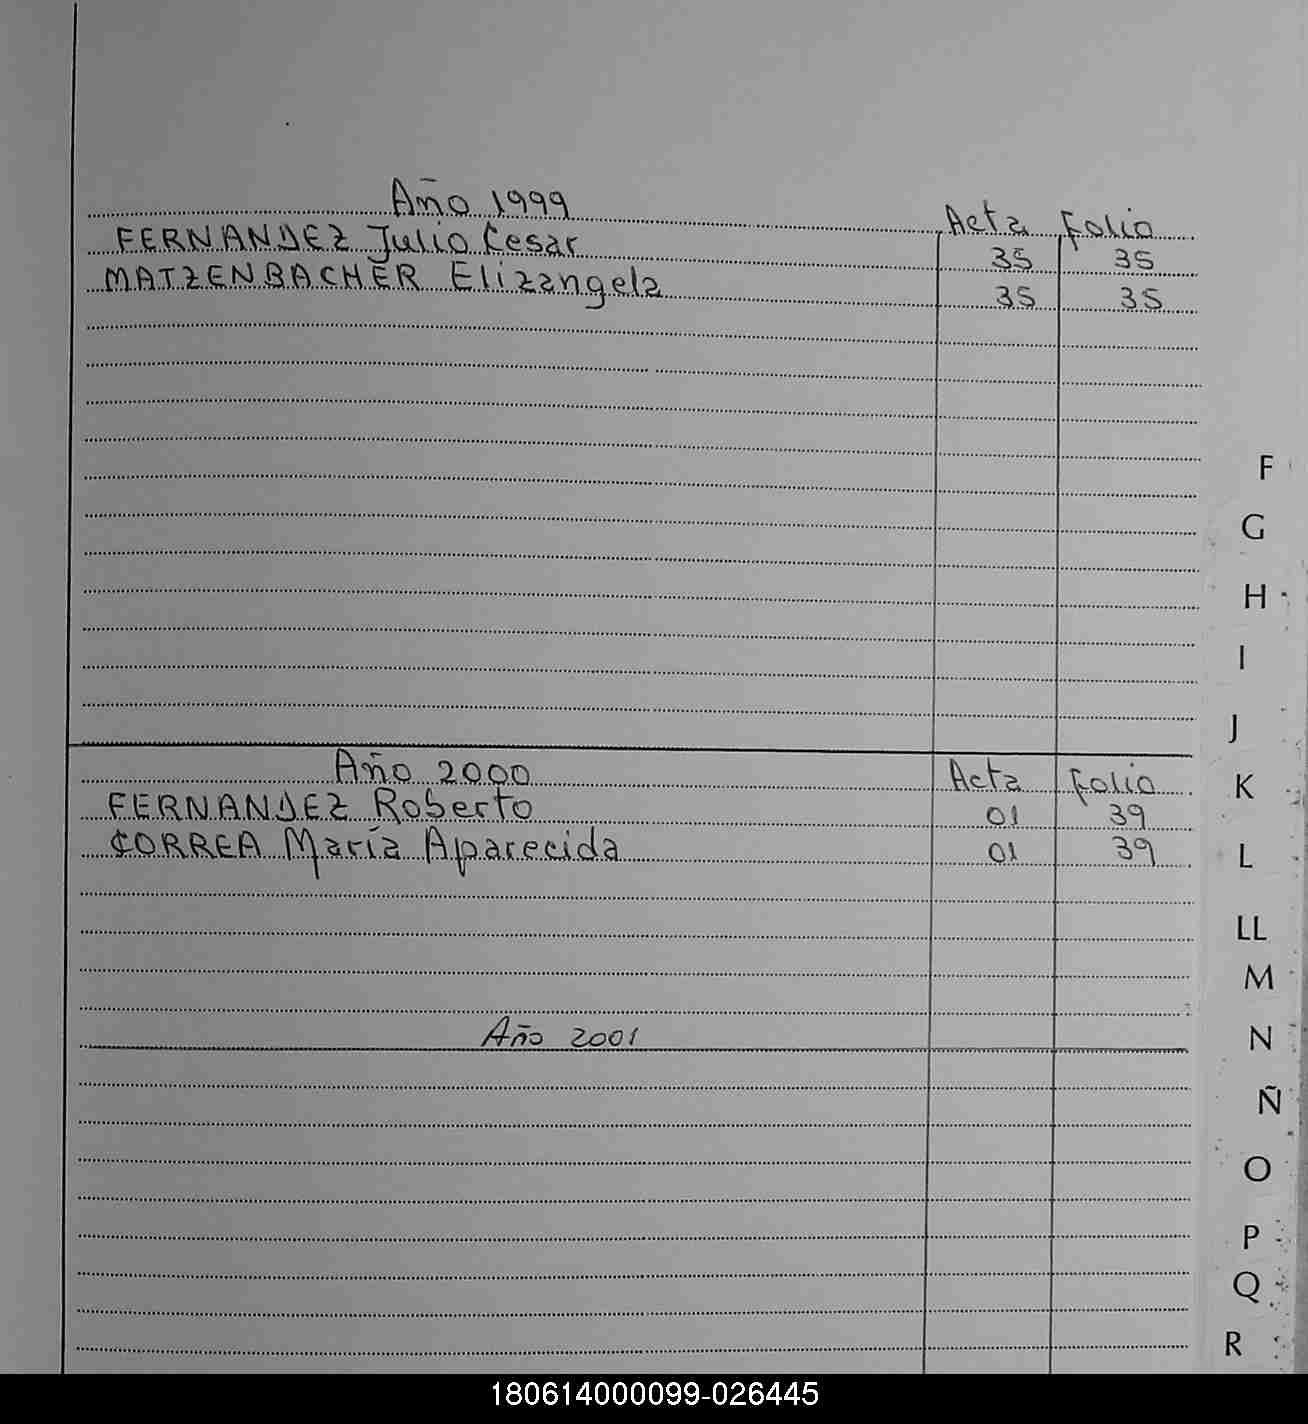 Año 1999 Acta Folio
FERNANDEZ Julio Cesar 35 35
MATZENBACHER Elizangela 35 35
F
G
H
I
J
Año 2000 Acta Folio
K
FERNANDEZ Roberto 01 39
CORREA María Aparecida 01 39
L
LL
M
Año 2001
N
Ñ
O
P
Q
R
180614000099-026445